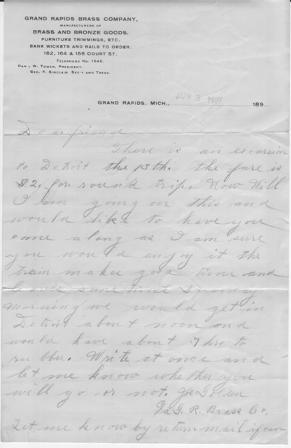 GRAND RAPIDS BRASS COMPANY,
MANUFACTURERS OF
BRASS AND BRONZE GOODS,
FURNITURE TRIMMINGS, ETC.
BANK WICKETS AND RAILS TO ORDER.
162, 164 & 166 COURT ST.
TELEPHONE No. 1540.
GRAND RAPIDS, MICH., 189
Dear friend
There is an excursion
to Detroit the 13th. the fare is
$2. for round trip. Now Will
I am going on this and
would like to have you
come along as I am sure
you would enjoy it the
train makes good time and
Sunday
morning we would get in
Detroit about noon and
would have about 7 hrs to
rubber. Write at once and
let me know whether you
will go or not.
G. R. Brass Co.
Let me know by return mail if you